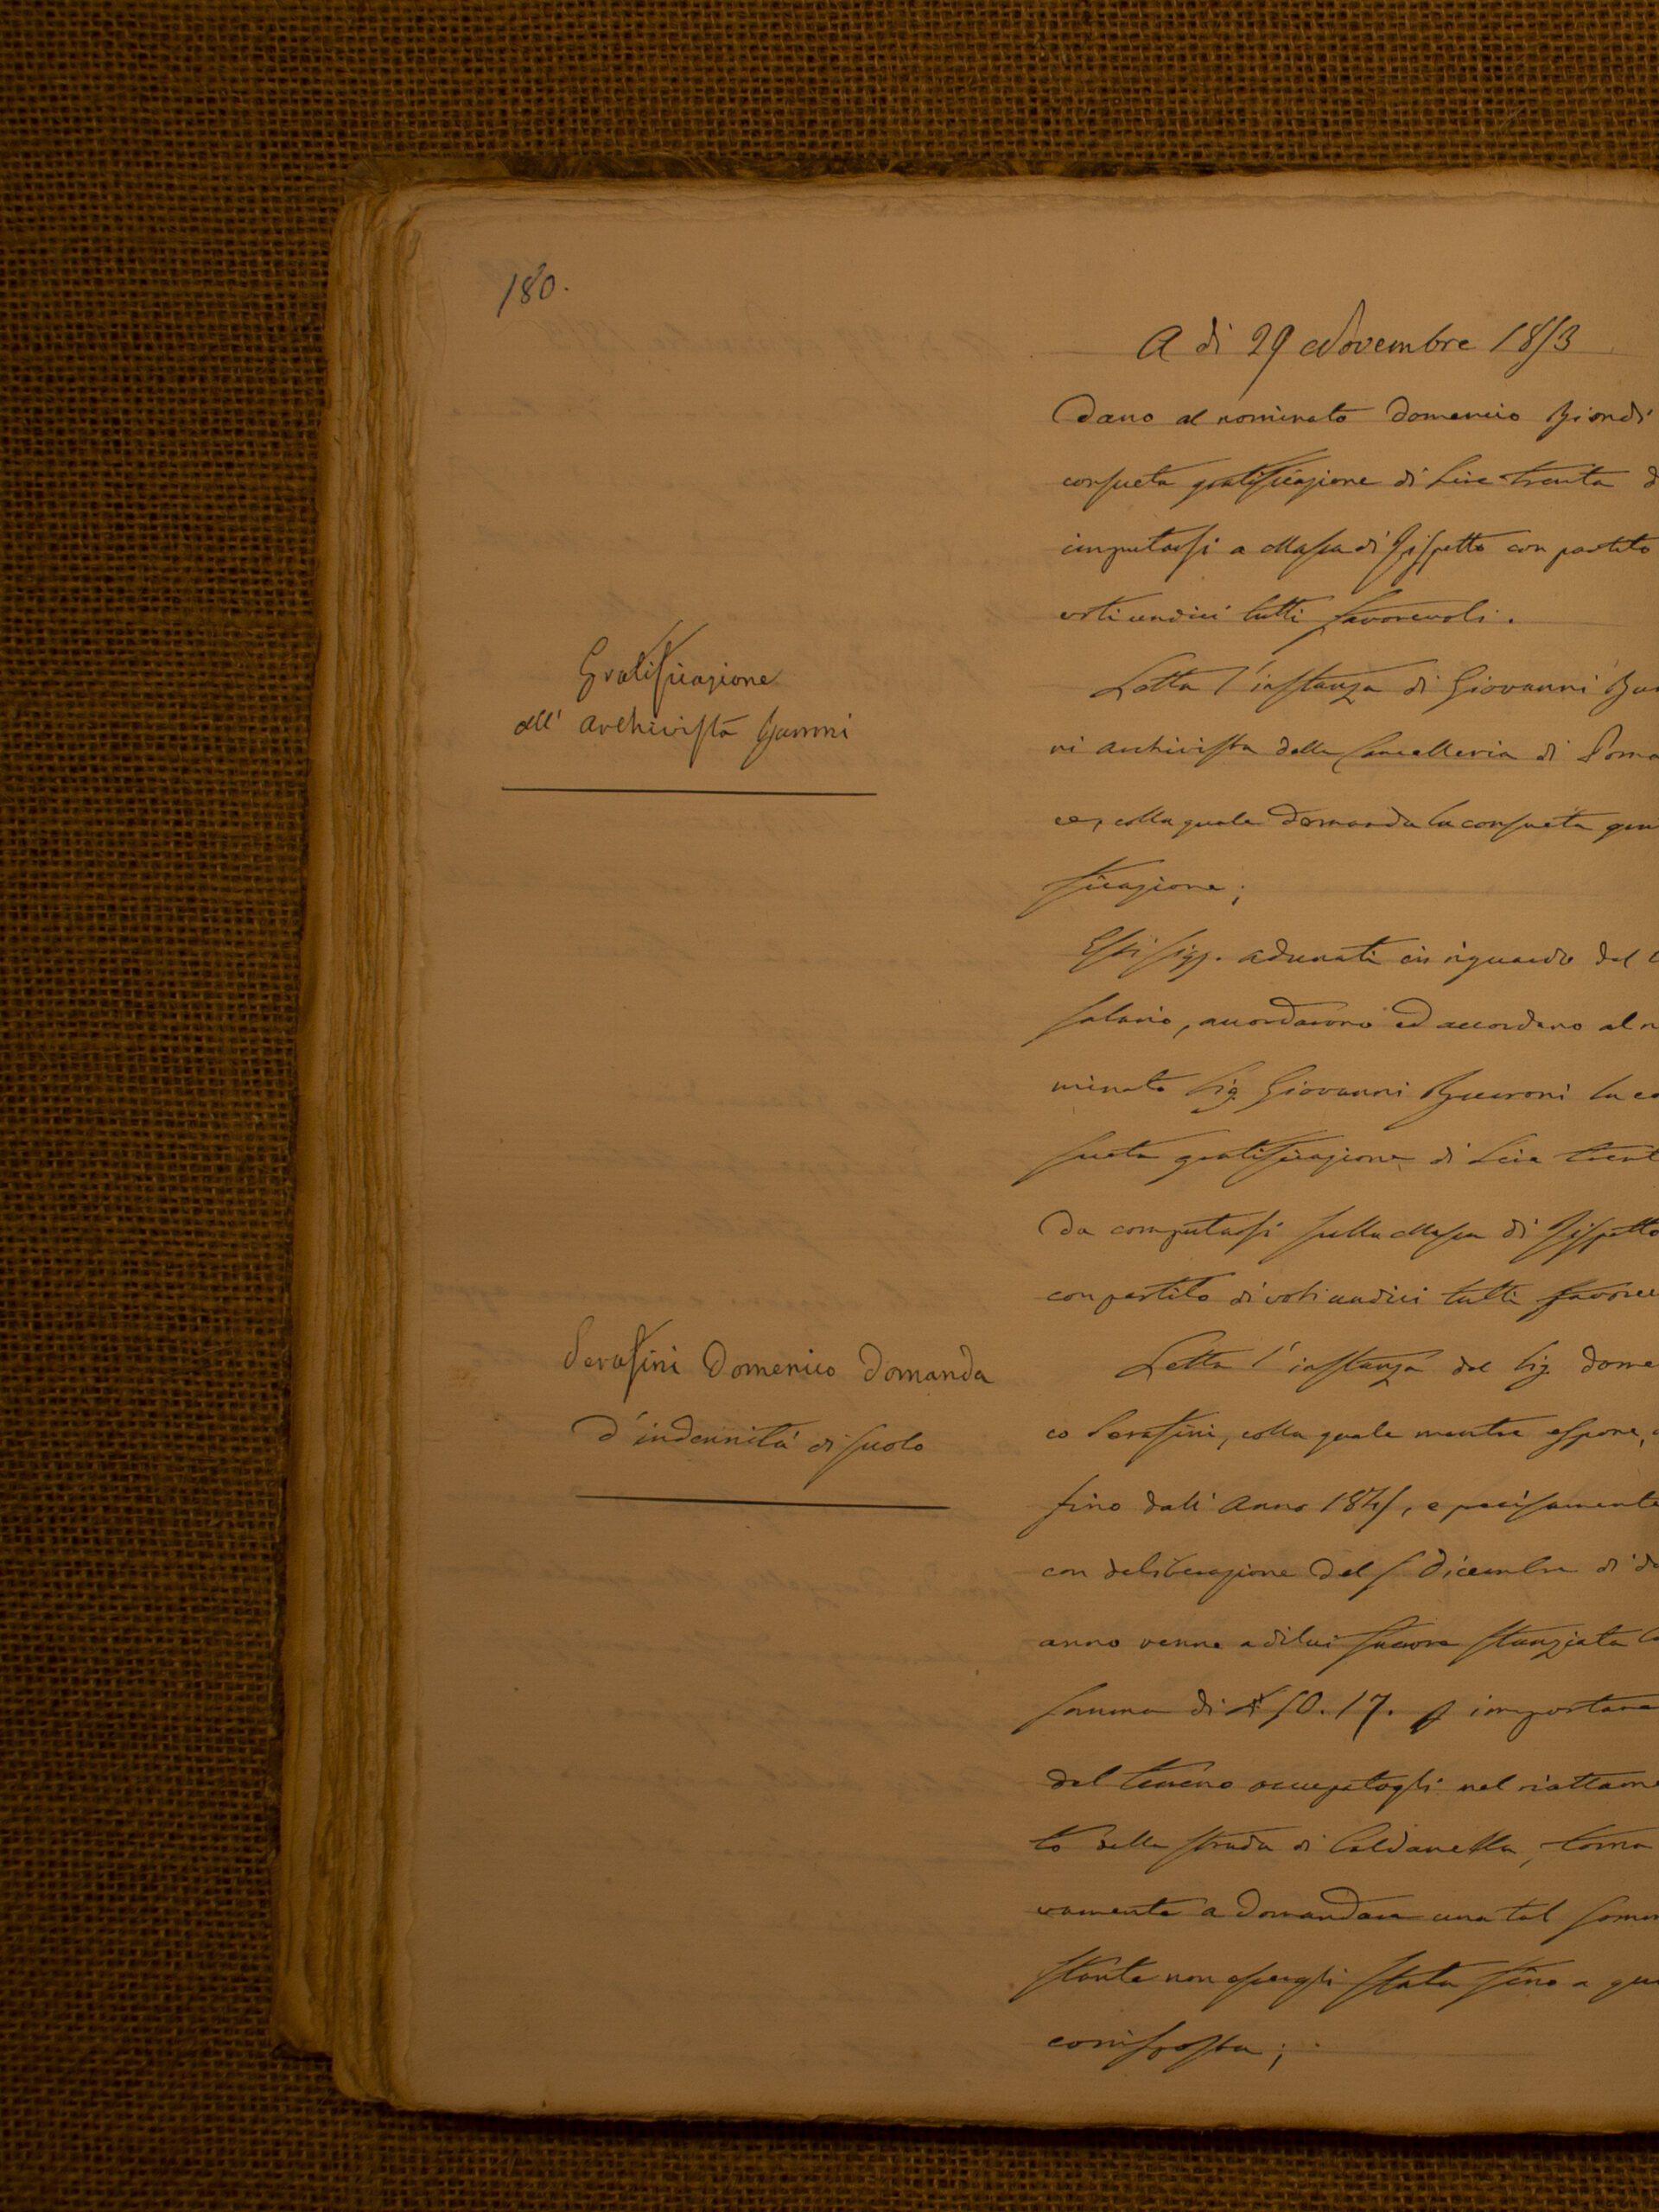 180.
A dì 29 Novembre 1853
Dano al nominato Domenico Biondi
consueta gratificazione di Lire trenta d
imputarsi a Massa di Rispetto con partito
voti undici tutti favorevoli.
Gratificazione
all' archivista
Letta l'instanza di Giovanni
ri archivista della Cancelleria di Poma
ce, colla quale domanda la consueta gra
ficazione;
Essi sigg. adunati in riguardo del
salario, accordarono ed accordano al n
minato Sig Giovanni la co
sueta gratificazione di Lire trent
da computarsi sulla Massa di Rispetto
con partito di voti undici tutti favorev
Serafini Domenico Domanda
d'indennità di suolo
Letta l'instanza del Sig. Dome
co Serafini, colla quale mentre espone,
fino dall'Anno 1845, e precisamente
con deliberazione del 5 Dicembre di d
anno venne a di lui favore stanziata la
somma di 50.17. importare
del terreno occupatogli nel riattame
to della strada di Caldanella, torna
vamente a domandare una tal somm
stante non essergli stata fino a qu
corrisposta;